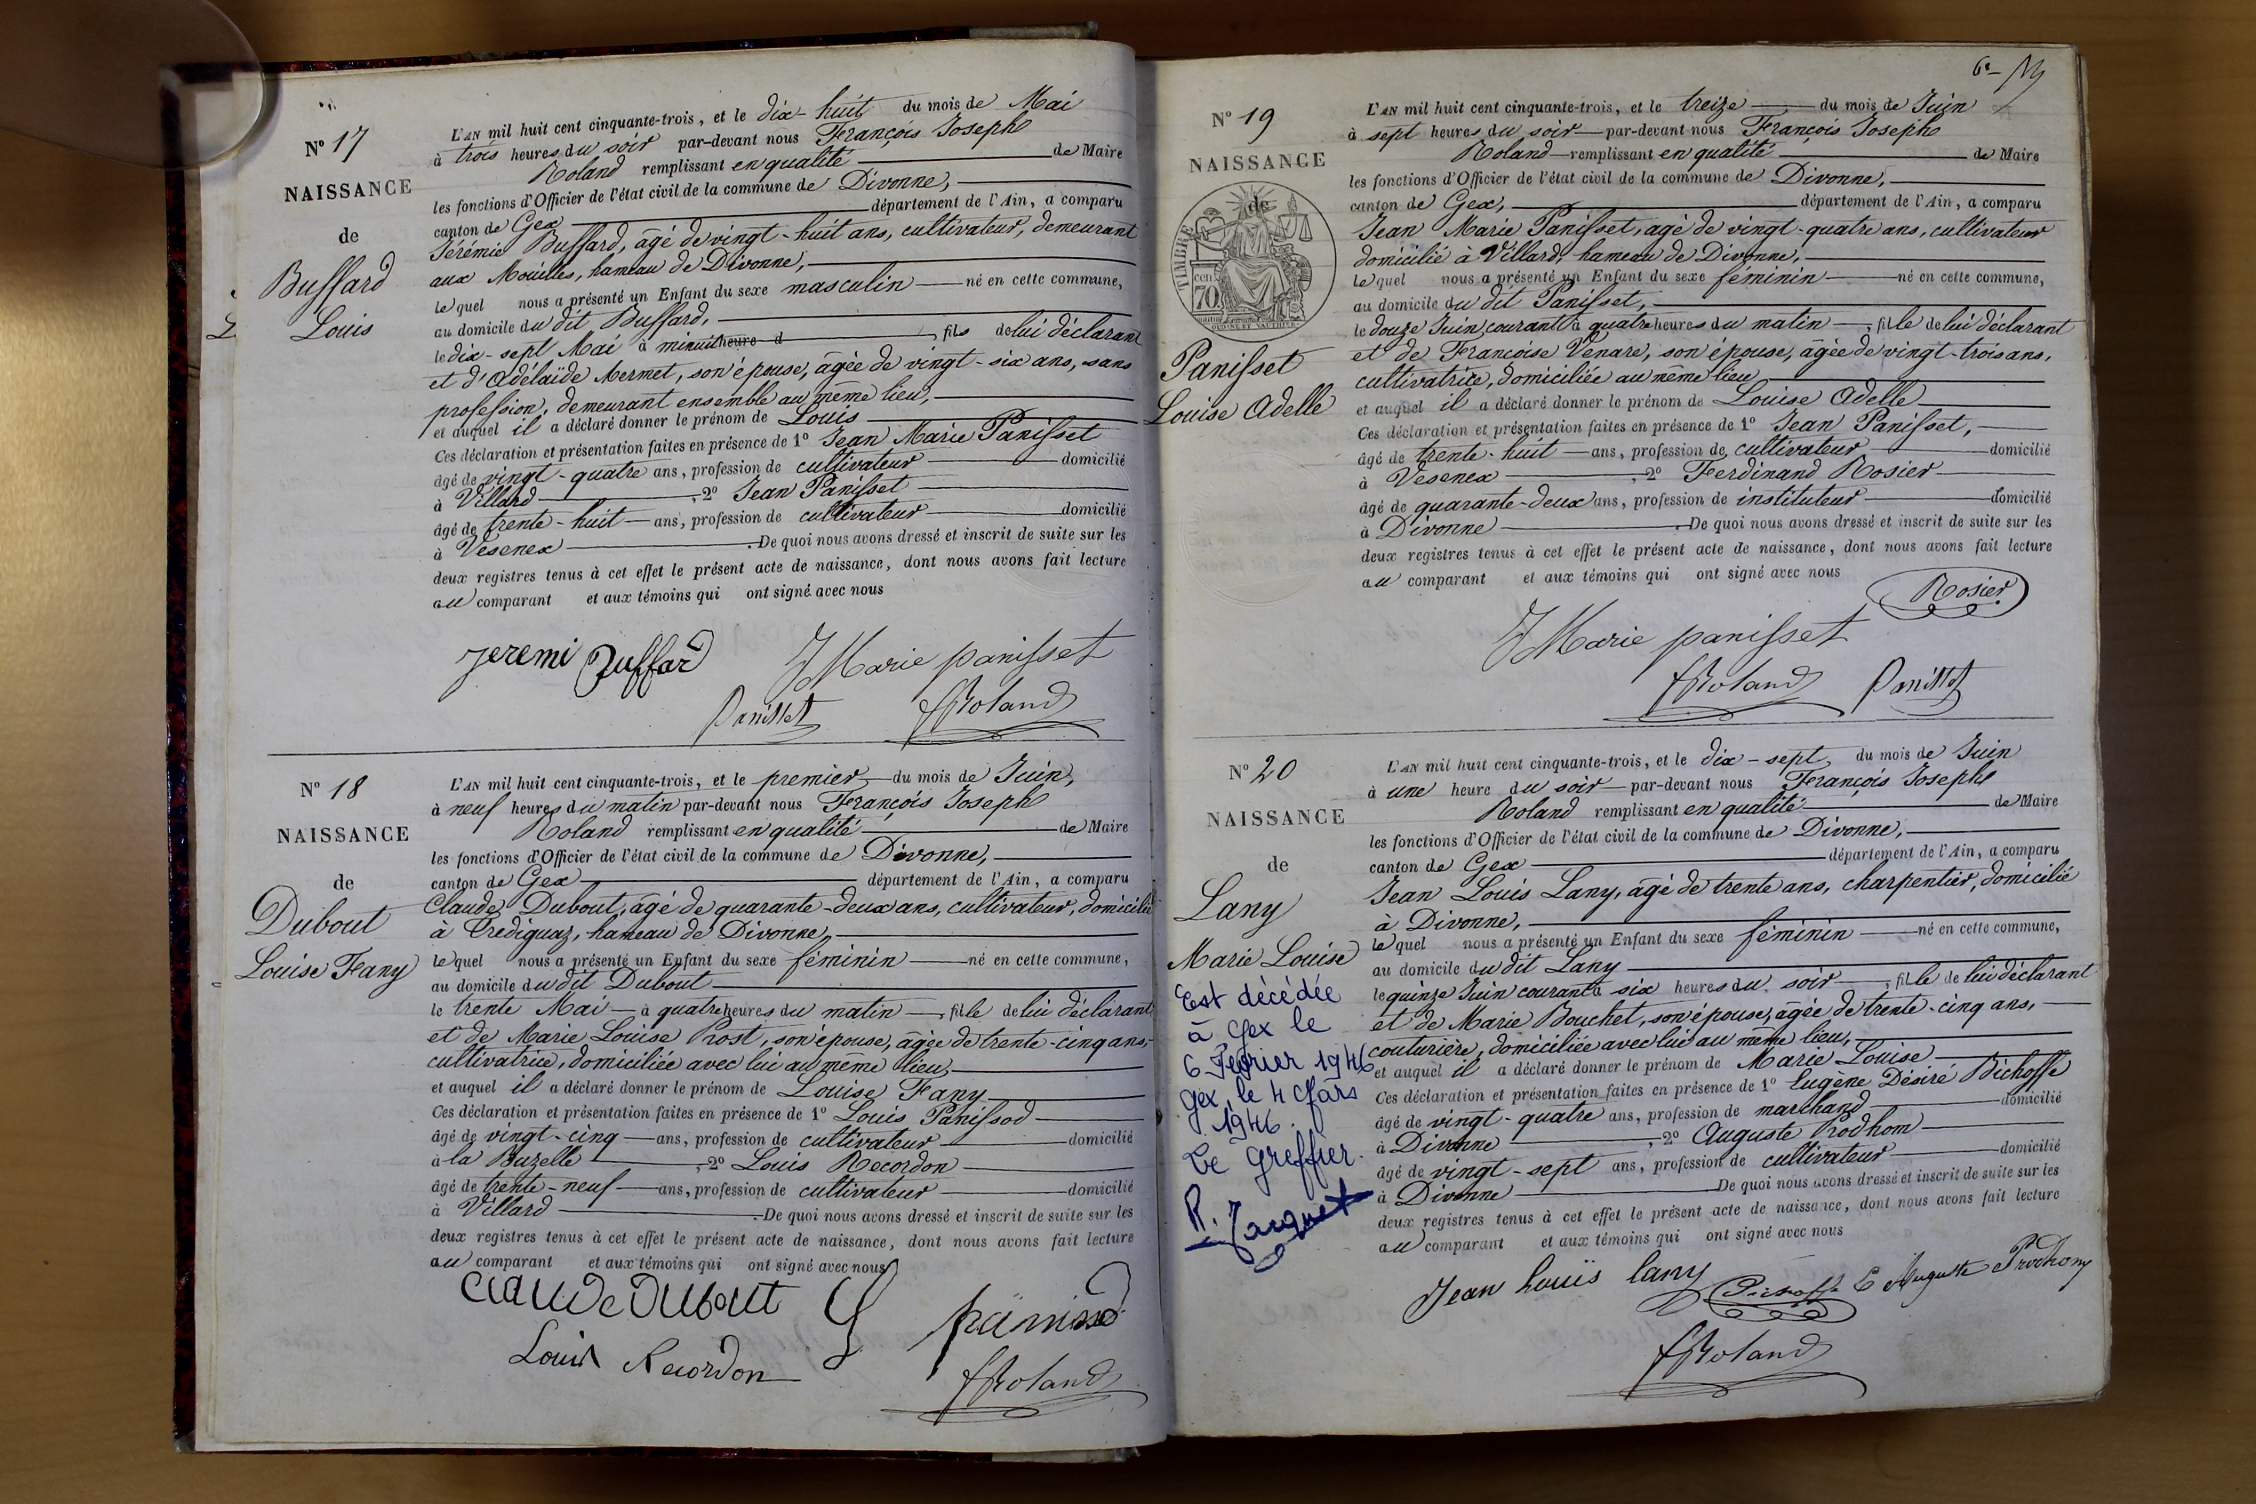 N° 17
NAISSANCE
de
Buffard
Louis
L'AN mil huit cent cinquante-trois, et le dix-huit du mois de Mai
à trois heures du soir par-devant nous François Joseph
Roland remplissant en qualité de Maire
les fonctions d'Officier de l'état civil de la commune de Divonne,
canton de Gex département de l'Ain, a comparu
Jérémie Buffard, âgé de vingt-huit ans, cultivateur, demeurant
aux Mouilles, hameau de Divonne,
lequel nous a présenté un Enfant du sexe masculin né en cette commune,
au domicile du dit Buffard,
le dix-sept Mai à minuit heure d , fils de lui déclarant
et d'Adélaïde Mermet, son épouse, âgée de vingt-six ans, sans
profession, demeurant ensemble au même lieu,
et auquel il a déclaré donner le prénom de Louis
Ces déclaration et présentation faites en présence de 1° Jean Marie Panisset
âgé de vingt-quatre ans, profession de cultivateur domicilié
à Villard , 2° Jean Panisset
âgé de trente-huit ans, profession de cultivateur domicilié
à Vesenex . De quoi nous avons dressé et inscrit de suite sur les
deux registres tenus à cet effet le présent acte de naissance, dont nous avons fait lecture
au comparant et aux témoins qui ont signé avec nous
Jeremi Buffard JMarie panisset
Panisset fRoland
N° 18
NAISSANCE
de
Dubout
Louise Fany
L'AN mil huit cent cinquante-trois, et le premier du mois de Juin,
à neuf heures du matin par-devant nous François Joseph
Roland remplissant en qualité de Maire
les fonctions d'Officier de l'état civil de la commune de Divonne,
canton de Gex département de l'Ain, a comparu
Claude Dubout, âgé de quarante-deux ans, cultivateur, domicilié
à Crédiguaz, hameau de Divonne,
lequel nous a présenté un Enfant du sexe féminin né en cette commune,
au domicile du dit Dubout
le trente Mai à quatre heures du matin , fille de lui déclarant
et de Marie Louise Prost, son épouse, âgée de trente-cinq ans,
cultivatrice, domiciliée avec lui au même lieu,
et auquel il a déclaré donner le prénom de Louise Fany
Ces déclaration et présentation faites en présence de 1° Louis Panissod
âgé de vingt-cinq ans, profession de cultivateur domicilié
à la Buzelle , 2° Louis Recordon
âgé de trente-neuf ans, profession de cultivateur domicilié
à Villard . De quoi nous avons dressé et inscrit de suite sur les
deux registres tenus à cet effet le présent acte de naissance, dont nous avons fait lecture
au comparant et aux témoins qui ont signé avec nous
Claude Dubout
Louis Recordon
fRoland
6e
N° 19
NAISSANCE
de
TIMBRE
cen
70
Panisset
Louise Adelle
L'AN mil huit cent cinquante-trois, et le treize du mois de Juin
à sept heures du soir par-devant nous François Joseph
Roland remplissant en qualité de Maire
les fonctions d'Officier de l'état civil de la commune de Divonne,
canton de Gex, département de l'Ain, a comparu
Jean Marie Panisset, agé de vingt-quatre ans, cultivateur
domicilié à Villard, hameau de Divonne,
lequel nous a présenté un Enfant du sexe féminin né en cette commune,
au domicile du dit Panisset,
le douze Juin courant à quatre heures du matin , fille de lui déclarant
et de Françoise Venare, son épouse, âgée de vingt-trois ans,
cultivatrice, domiciliée au même lieu
et auquel il a déclaré donner le prénom de Louise Adelle
Ces déclaration et présentation faites en présence de 1° Jean Panisset,
âgé de trente-huit ans, profession de cultivateur domicilié
à Vesenex , 2° Ferdinand Rosier
âgé de quarante-deux ans, profession de instituteur domicilié
à Divonne . De quoi nous avons dressé et inscrit de suite sur les
deux registres tenus à cet effet le présent acte de naissance, dont nous avons fait lecture
au comparant et aux témoins qui ont signé avec nous
Rosier
JMarie panisset
fRoland Panisset
N° 20
NAISSANCE
de
Lany
Marie Louise
Est décédée
à Gex le
6 Fevrier 1946
Gex, le 4 Mars
1946.
Le Greffier.
R. Jacquet
L'AN mil huit cent cinquante-trois, et le dix-sept du mois de Juin
à une heure du soir par-devant nous François Joseph
Roland remplissant en qualité de Maire
les fonctions d'Officier de l'état civil de la commune de Divonne,
canton de Gex département de l'Ain, a comparu
Jean Louis Lany, âgé de trente ans, charpentier, domicilié
à Divonne,
lequel nous a présenté un Enfant du sexe féminin né en cette commune,
au domicile du dit Lany
le quinze Juin courant à six heures du soir , fille de lui déclarant
et de Marie Bouchet, son épouse, âgée de trente-cinq ans,
couturière, domiciliée avec lui au même lieu,
et auquel il a déclaré donner le prénom de Marie Louise
Ces déclaration et présentation faites en présence de 1° Eugène Désiré Bichoffe
âgé de vingt-quatre ans, profession de marchand domicilié
à Divonne , 2° Auguste Prodhom
âgé de vingt-sept ans, profession de cultivateur domicilié
à Divonne De quoi nous avons dressé et inscrit de suite sur les
deux registres tenus à cet effet le présent acte de naissance, dont nous avons fait lecture
au comparant et aux témoins qui ont signé avec nous
Jean Louis Lany Auguste Prodhom
fRoland